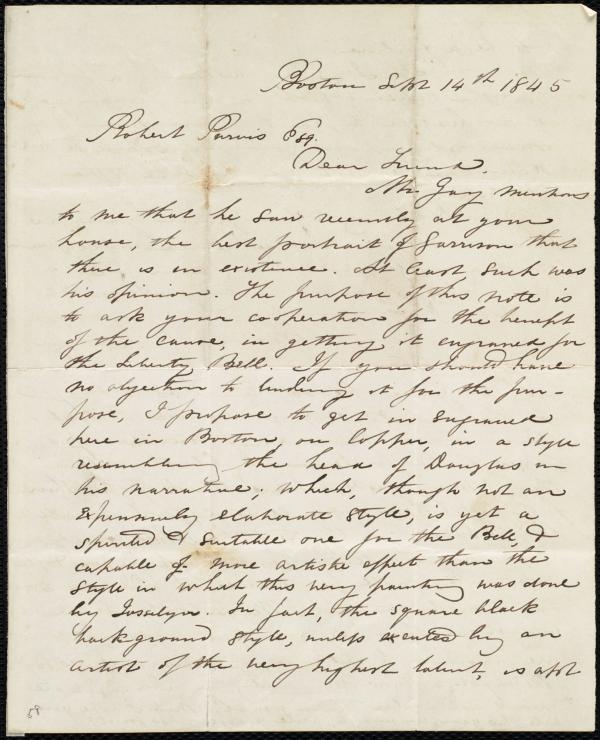 Boston Sept 14th 1845
Robert Purvis Esq.
Dear Friend,
Mr Gay mentions
to me that he saw recently at your
house, the best portrait of Garrison that
there is in existence. At least such was
his opinion. The purpose of this note is
to ask your cooperation for the benefit
of the cause, in getting it engraved for
the Liberty Bell. If you should have
no objection to lending it for the pur-
pose, I propose to get in engraved
here in Boston, on Copper, in a style
resembling the head of Douglas in
his narrative; which, though not an
expensively elaborate style, is yet a
spirited & suitable one for the Bell, &
capable of more artistic effect than the
style in which this very painting was done
by Josselyn. In fact, the square black
background style, unless executed by an
artist of the very highest talent, is apt